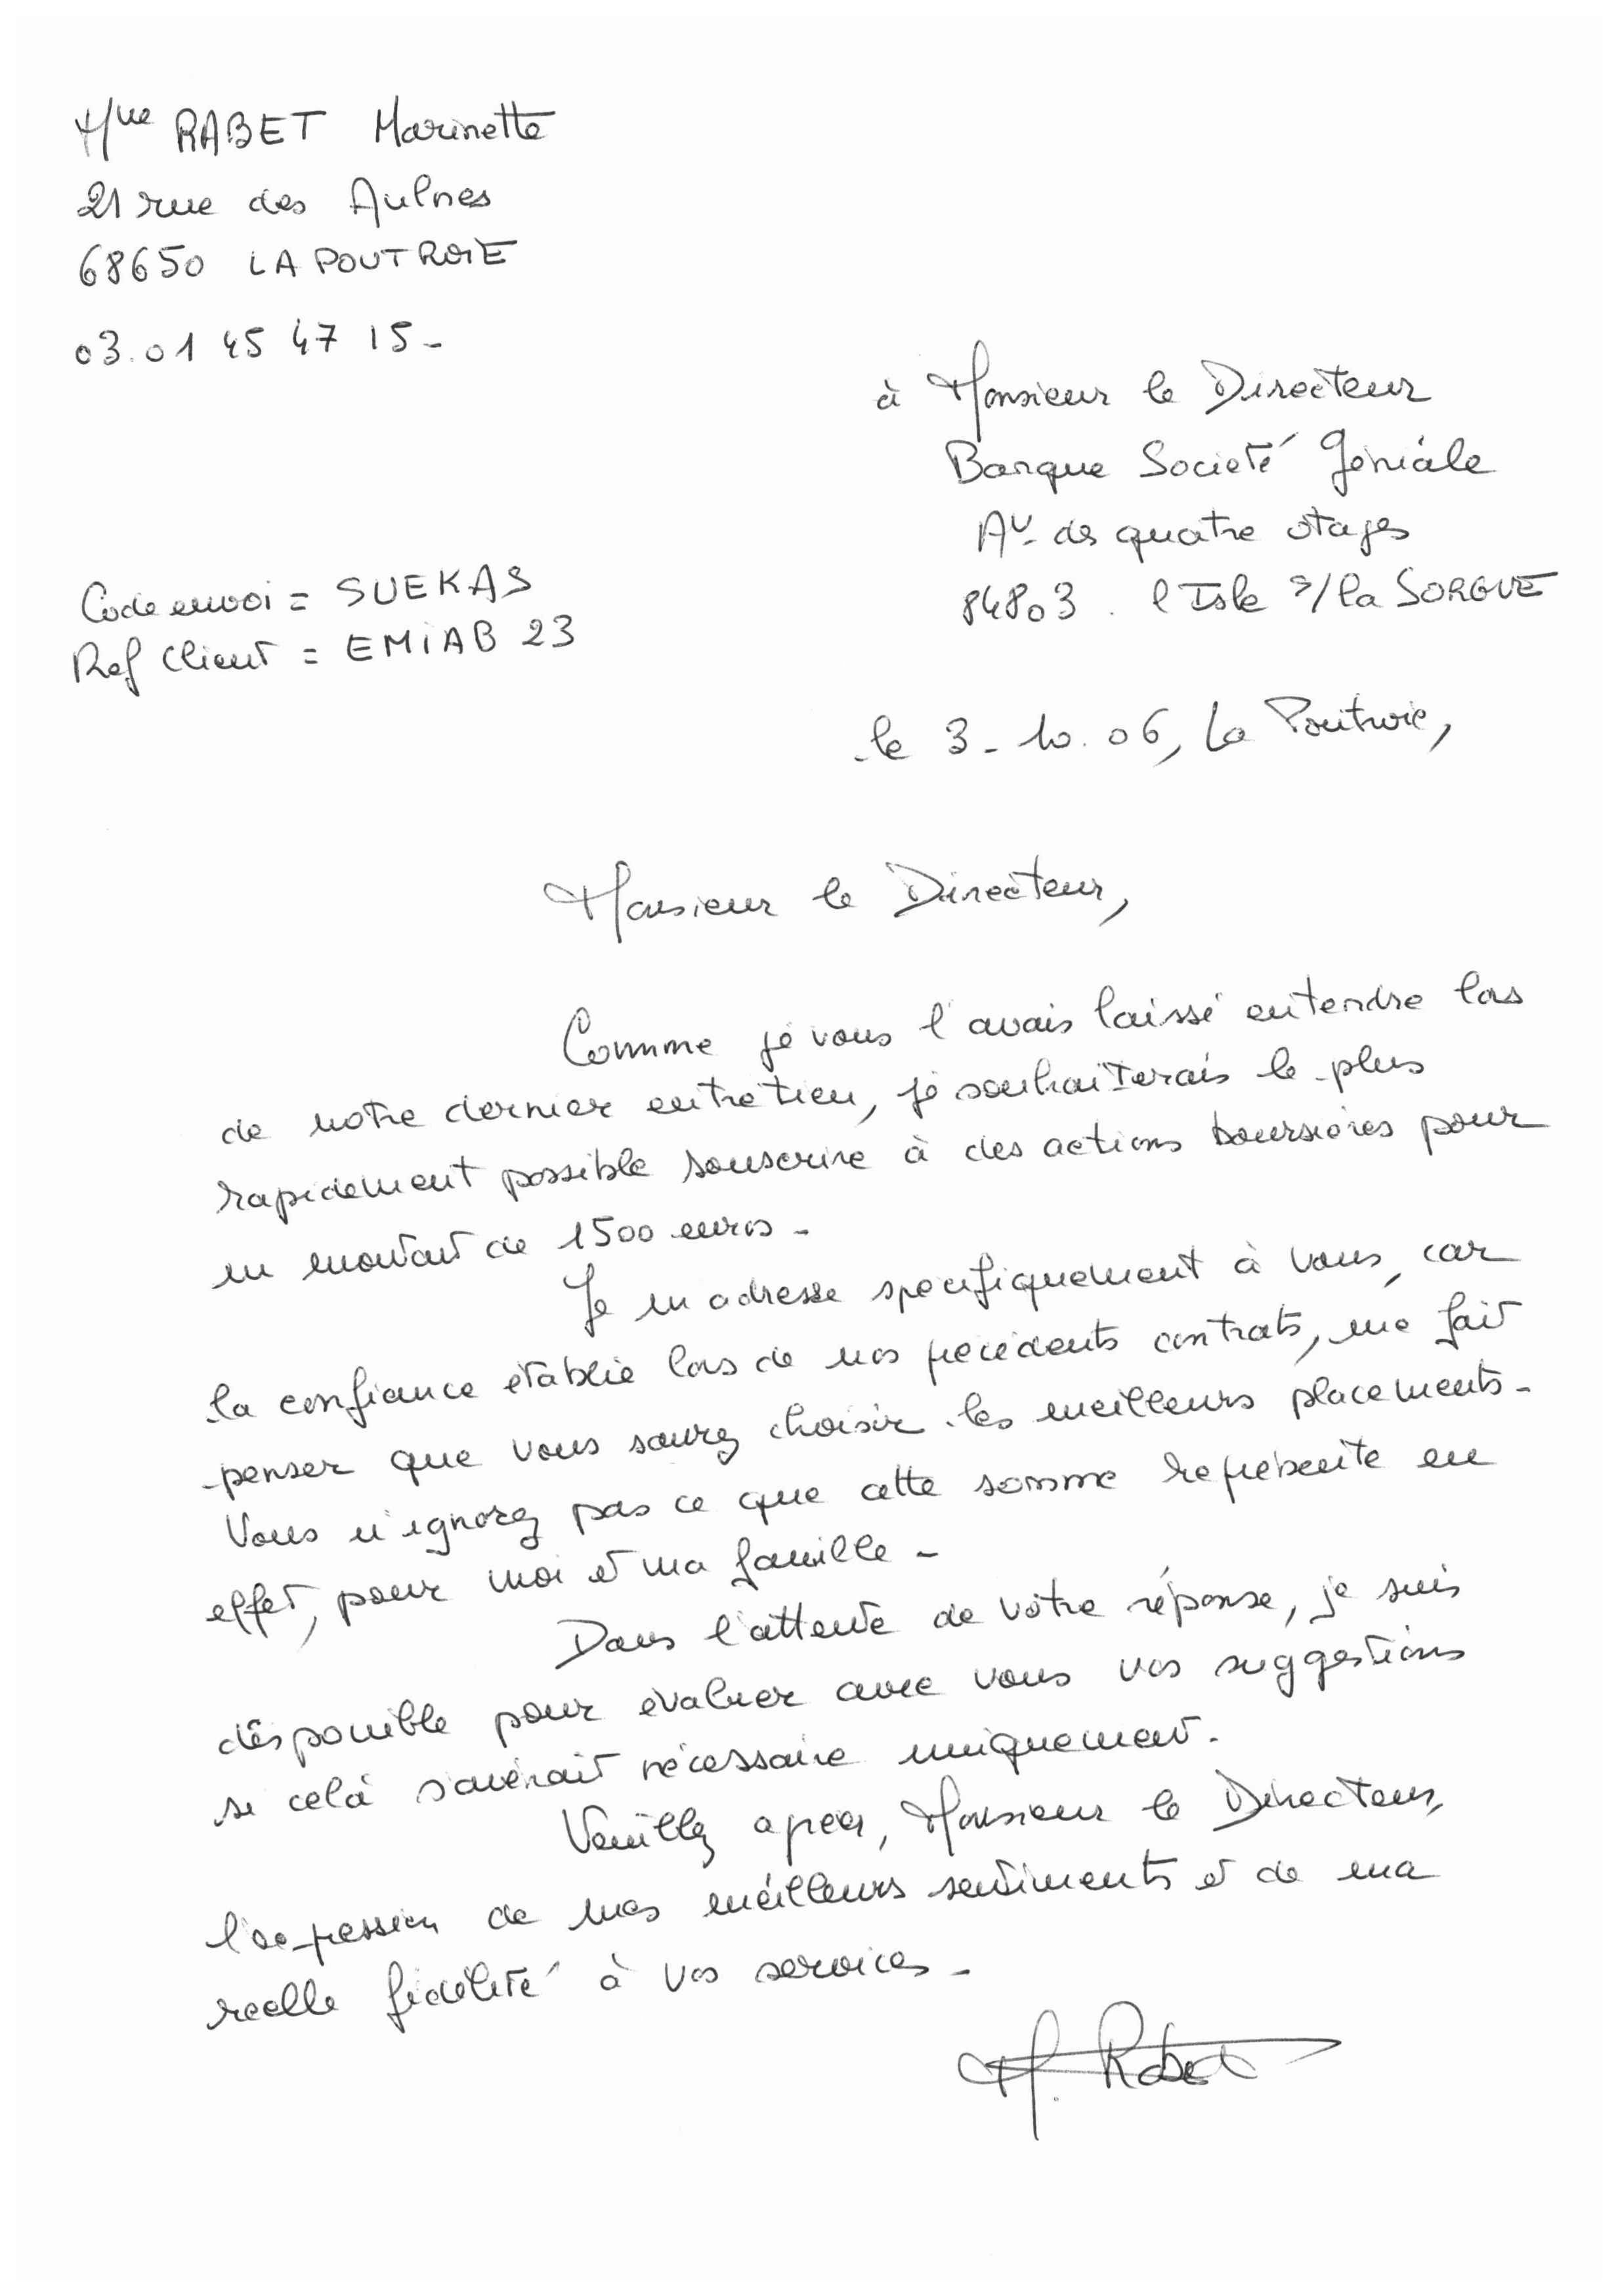 Mme RABET Marinette
21 rue des Aulnes
68650 LAPOUTROIE
03.01 45 47 15-
à Monsieur le Directeur
Banque Société Géniale
Av. des quatre otages
84803. l'Isle s/la SORGUE
Code envoi = SUEKAS
Ref client = EMIAB 23
le 3-10.06, La Poutroie,
Monsieur le Directeur,
Comme je vous l'avais laissé entendre lors
de notre dernier entretien, je souhaiterais le plus
rapidement possible souscrire à des actions boursières pour
un montant de 1500 euros-
Je m'adresse spécifiquement à vous, car
la confiance établie lors de nos précédents contrats, me fait
penser que vous saurez choisir les meilleurs placements-
Vous n'ignorez pas ce que cette somme représente en
effet, pour moi et ma famille-
Dans l'attente de votre réponse, je suis
disponible pour évaluer avec vous vos suggestions
si celà s'avérait nécessaire uniquement.
Veuillez agréer, Monsieur le Directeur,
l'expression de mes meilleurs sentiments et de ma
réelle fidélité à vos services-
M. Rabet